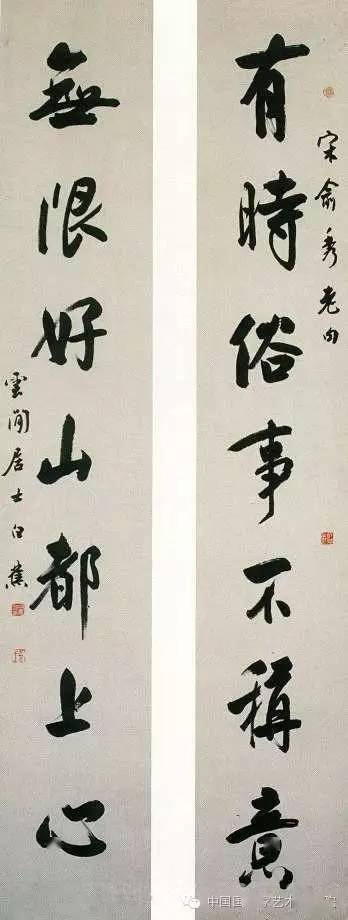 宋俞秀老句
有時俗事不稱意
無限好山都上心
雲間居士白蕉
中国国 艺术